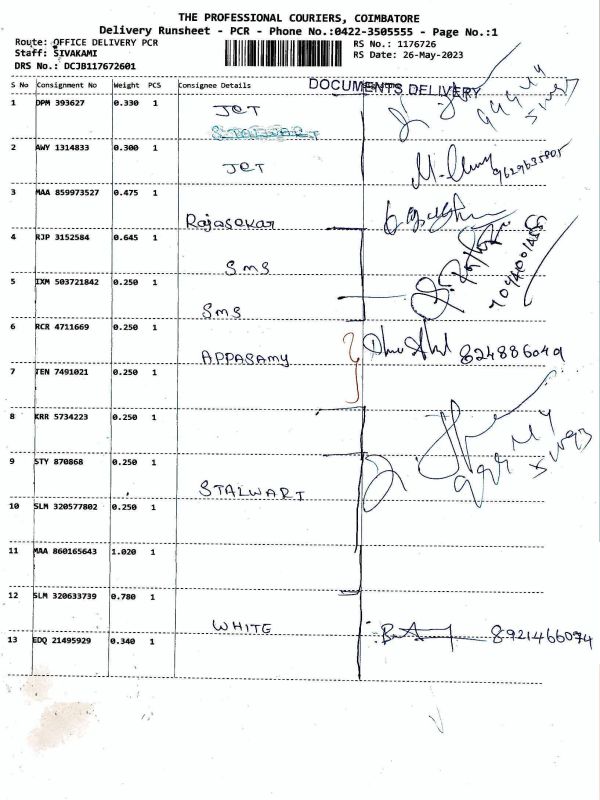 THE PROFESSIONAL COURIERS, COIMBATORE
Delivery Runsheet - PCR - Phone No.:0422-3505555 - Page No.:1
Route: OFFICE DELIVERY PCR
RS No.: 1176726
Staff: SIVAKAMI
RS Date: 26-May-2023
DRS No.: DCJB117672601
S No Consignment No Weight PCS Consignee Details DOCUMENTS DELIVERY
1 DPM 393627 0.330 1 JET
STALWART
2 AWY 1314833 0.300 1 JET 9629635805
3 MAA 859973527 0.475 1 Rajasekar
4 RJP 3152584 0.645 1 SMS
5 IXM 503721842 0.250 1 SMS
6 RCR 4711669 0.250 1 APPASAMY 824886049
7 TEN 7491021 0.250 1
8 KRR 5734223 0.250 1
9 STY 870868 0.250 1 STALWART
10 SLM 320577802 0.250 1
11 MAA 860165643 1.020 1
12 SLM 320633739 0.780 1 WHITE
13 EDQ 21495929 0.340 1 8921466094